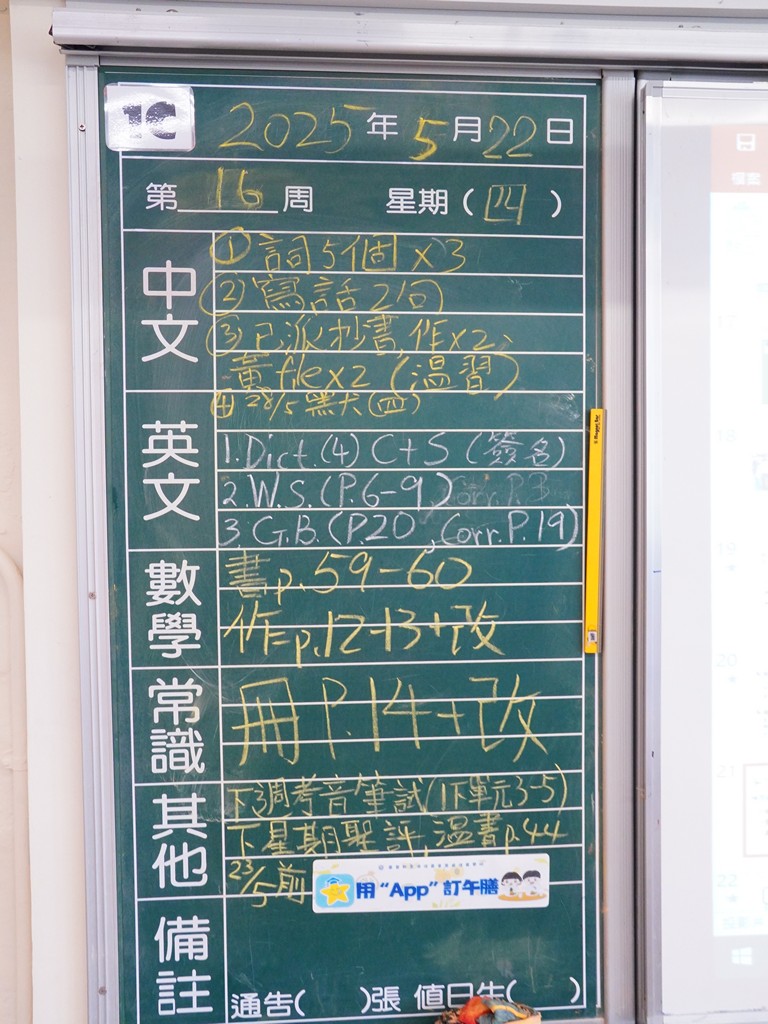 1C
2025年5月22日
第16周 星期(四)
中文
① 詞5個 x3
② 寫話2句
③ 已派抄書,作x2、
黃filex2 (溫習)
④ 28/5 黑犬(四)
英文
1. Dict.(4) C+S (簽名)
2. W.S.(P.6-9) Corr. P.3
3. G.B.(P.20, Corr. P.19)
數學
書p.59-60
作p.12-13+改
常識
冊P.14+改
其他
下週考音筆試(1下單元3-5)
下星期聖評,溫書p.44
23/5前
用“App”訂午膳
備註
通告( )張 值日生( )
檔案
17
18
19
20
21
22